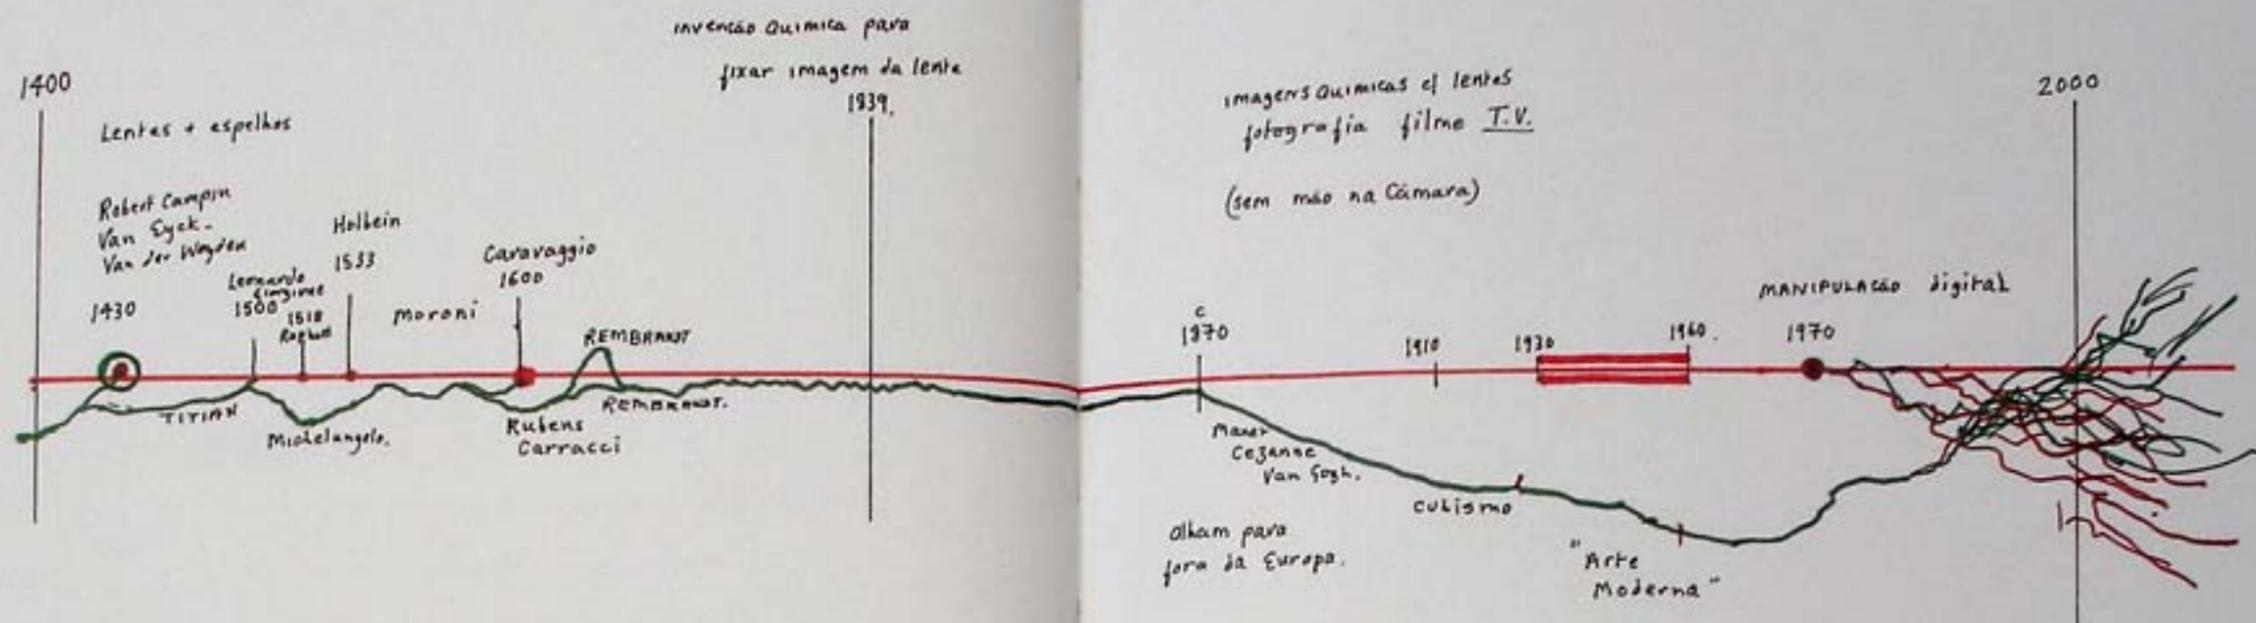 1400
Lentes + espelhos
Robert Campin
Van Eyck.
Van der Weyden
1430
Leonardo
Giorgione
1500
1518
Raphael
Holbein
1533
Moroni
Caravaggio
1600
REMBRANDT
TITIAN
Michelangelo.
Rubens
Carracci
REMBRANDT.
invenção Quimica para
fixar imagem da lente
1839.
imagens Quimicas c/ lentes
fotografia filme T.V.
(sem mão na Câmara)
c
1870
1910
1930
1960.
MANIPULAÇÃO digital
1970
2000
Manet
Cezanne
Van Gogh.
olham para
fora da Europa.
CUBISMO
"Arte
Moderna"